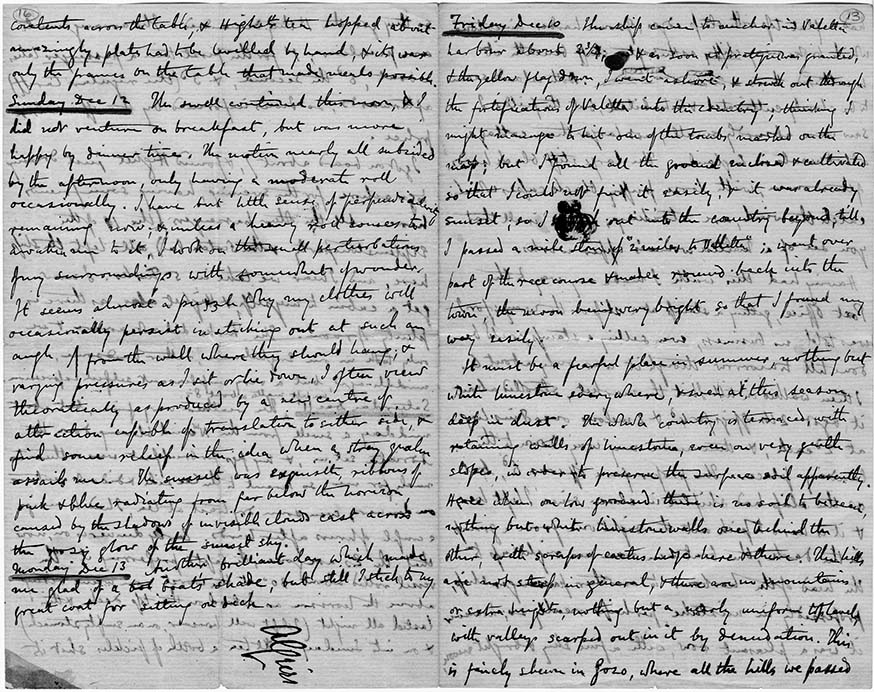 16
contents across the table, & High tea hopped about
amazingly, plates had to be by hand, & it was
only the frames on the table that made meals possible.
Sunday Dec 12 The swell continued this morn, & I
did not venture on breakfast, but was more
happy by dinner time. The motion nearly all subsided
by the afternoon, only having a moderate roll
occasionally. I have but little sense of perpendicularity
remaining now; & unless a heavy roll comes to
awaken me to it, I look on the small perturbations
of my surroundings with somewhat of wonder.
It seems almost a puzzle why my clothes will
occasionally persist in sticking out at such an
angle from the wall where they should hang, &
varying pressures as I sit or lie down, I often view
theoretically as produced by a new centre of
attraction capable of translation to either side, &
find some relief in the idea when a stray qualm
assails me. The sunset was exquisite, ribbons of
pink & blue radiating from far below the horizon
caused by the shadows of invisible clouds cast across
the rosy glow of the sunset sky.
Monday Dec 13 Another brilliant day which made
me glad of a boat's shade, but still I stick to my
great coat for sitting on deck.
Algiers
13
Friday Dec 10 The ship came to anchor in Valetta
harbour about & as soon as pratique was granted,
& the yellow flag down, I went ashore, & struck out through
the fortifications of Valetta into the country, thinking I
might manage to hit one of the tombs marked on the
map; but I found all the ground enclosed & cultivated
so that I could not find it easily, & it was already
sunset, so I out into the country beyond, till,
I passed a mile stone of "2 miles to Valetta" & went over
part of the race course & made round back into the
town, the moon being very bright so that I found my
way easily.
It must be a fearful place in summer, nothing but
white limestone everywhere, & even at this season
deep in dust. The whole country is terraced, with
retaining walls of limestone, even on very gentle
slopes, in order to preserve the surface soil apparently.
Hence when on low ground there is no soil to be seen,
nothing but white limestone walls one behind the
other, with scraps of cactus hedge here & there. The hills
are not steep in general, & there are no mountains
or extra heights, nothing but a nearly uniform tableland
with valleys scarped out in it by denudation. This
is finely shewn in Gozo, where all the hills we passed